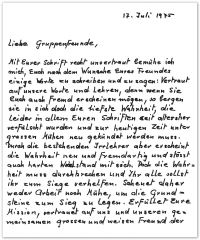 13. Juli 1975
Liebe Gruppenfreunde,
Mit Eurer Schrift recht unvertraut bemühe ich
mich, Euch nach dem Wunsche Eures Freundes
einige Worte zu schreiben und zu sagen: Vertraut
auf unsere Worte und Lehren, denn wenn sie
Euch auch fremd erscheinen mögen, so bergen
sie in sich doch die tiefste Wahrheit, die
leider in allem Euren Schriften seit altersher
verfälscht wurden und zur heutigen Zeit unter
grossen Mühen neu gekündet werden muss.
Durch die bestehenden Irrlehren aber erscheint
die Wahrheit neu und fremdartig und stösst
auch harten Widerstand mit sich. Doch die Wahr-
heit muss durchbrechen und Ihr alle sollt
ihr zum Siege verhelfen. Scheuet daher
weder Arbeit noch Mühe, um die Grund-
steine zum Sieg zu legen. Erfüllet Eure
Mission, vertrauet auf uns und unseren ge-
meinsamen grossen und weisen Freund der